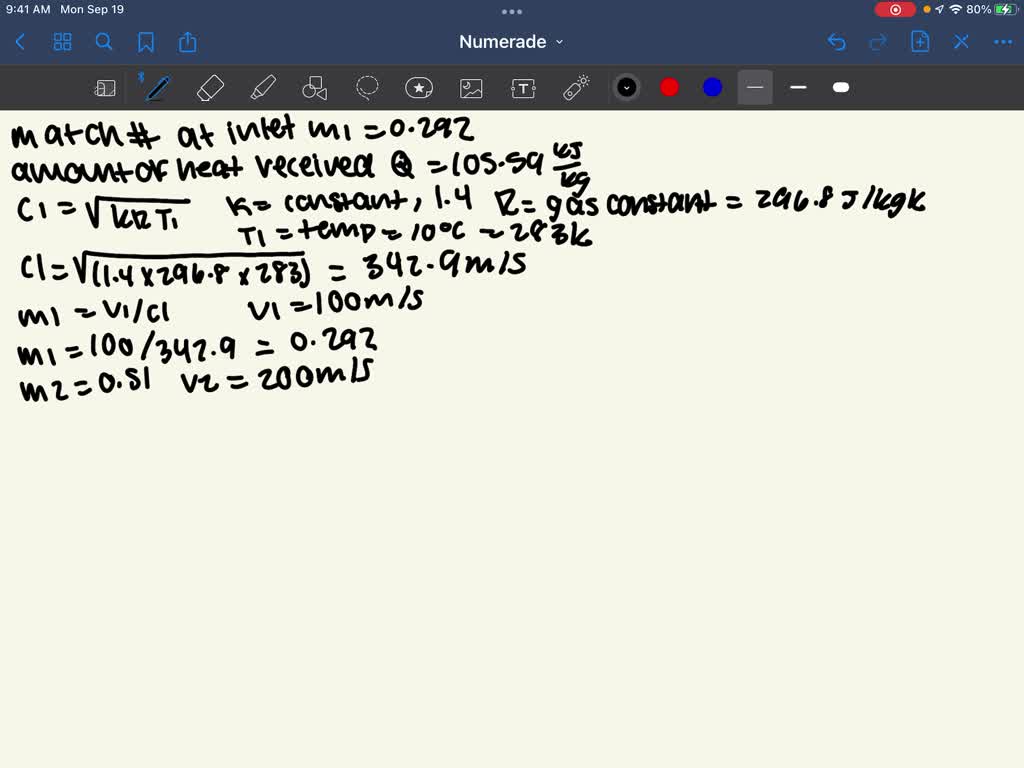 9:41 AM Mon Sep 19
80%
Numerade
match# at inlet m1 = 0.292
amount of heat received Q = 105.59 kJ/kg
C1 = √KRT1 K = constant, 1.4 R = gas constant = 296.8 J/kgK
T1 = temp = 10°C = 283K
C1 = √(1.4 x 296.8 x 283) = 342.9 m/s
m1 = V1/C1 V1 = 100 m/s
m1 = 100/342.9 = 0.292
m2 = 0.51 V2 = 200 m/s